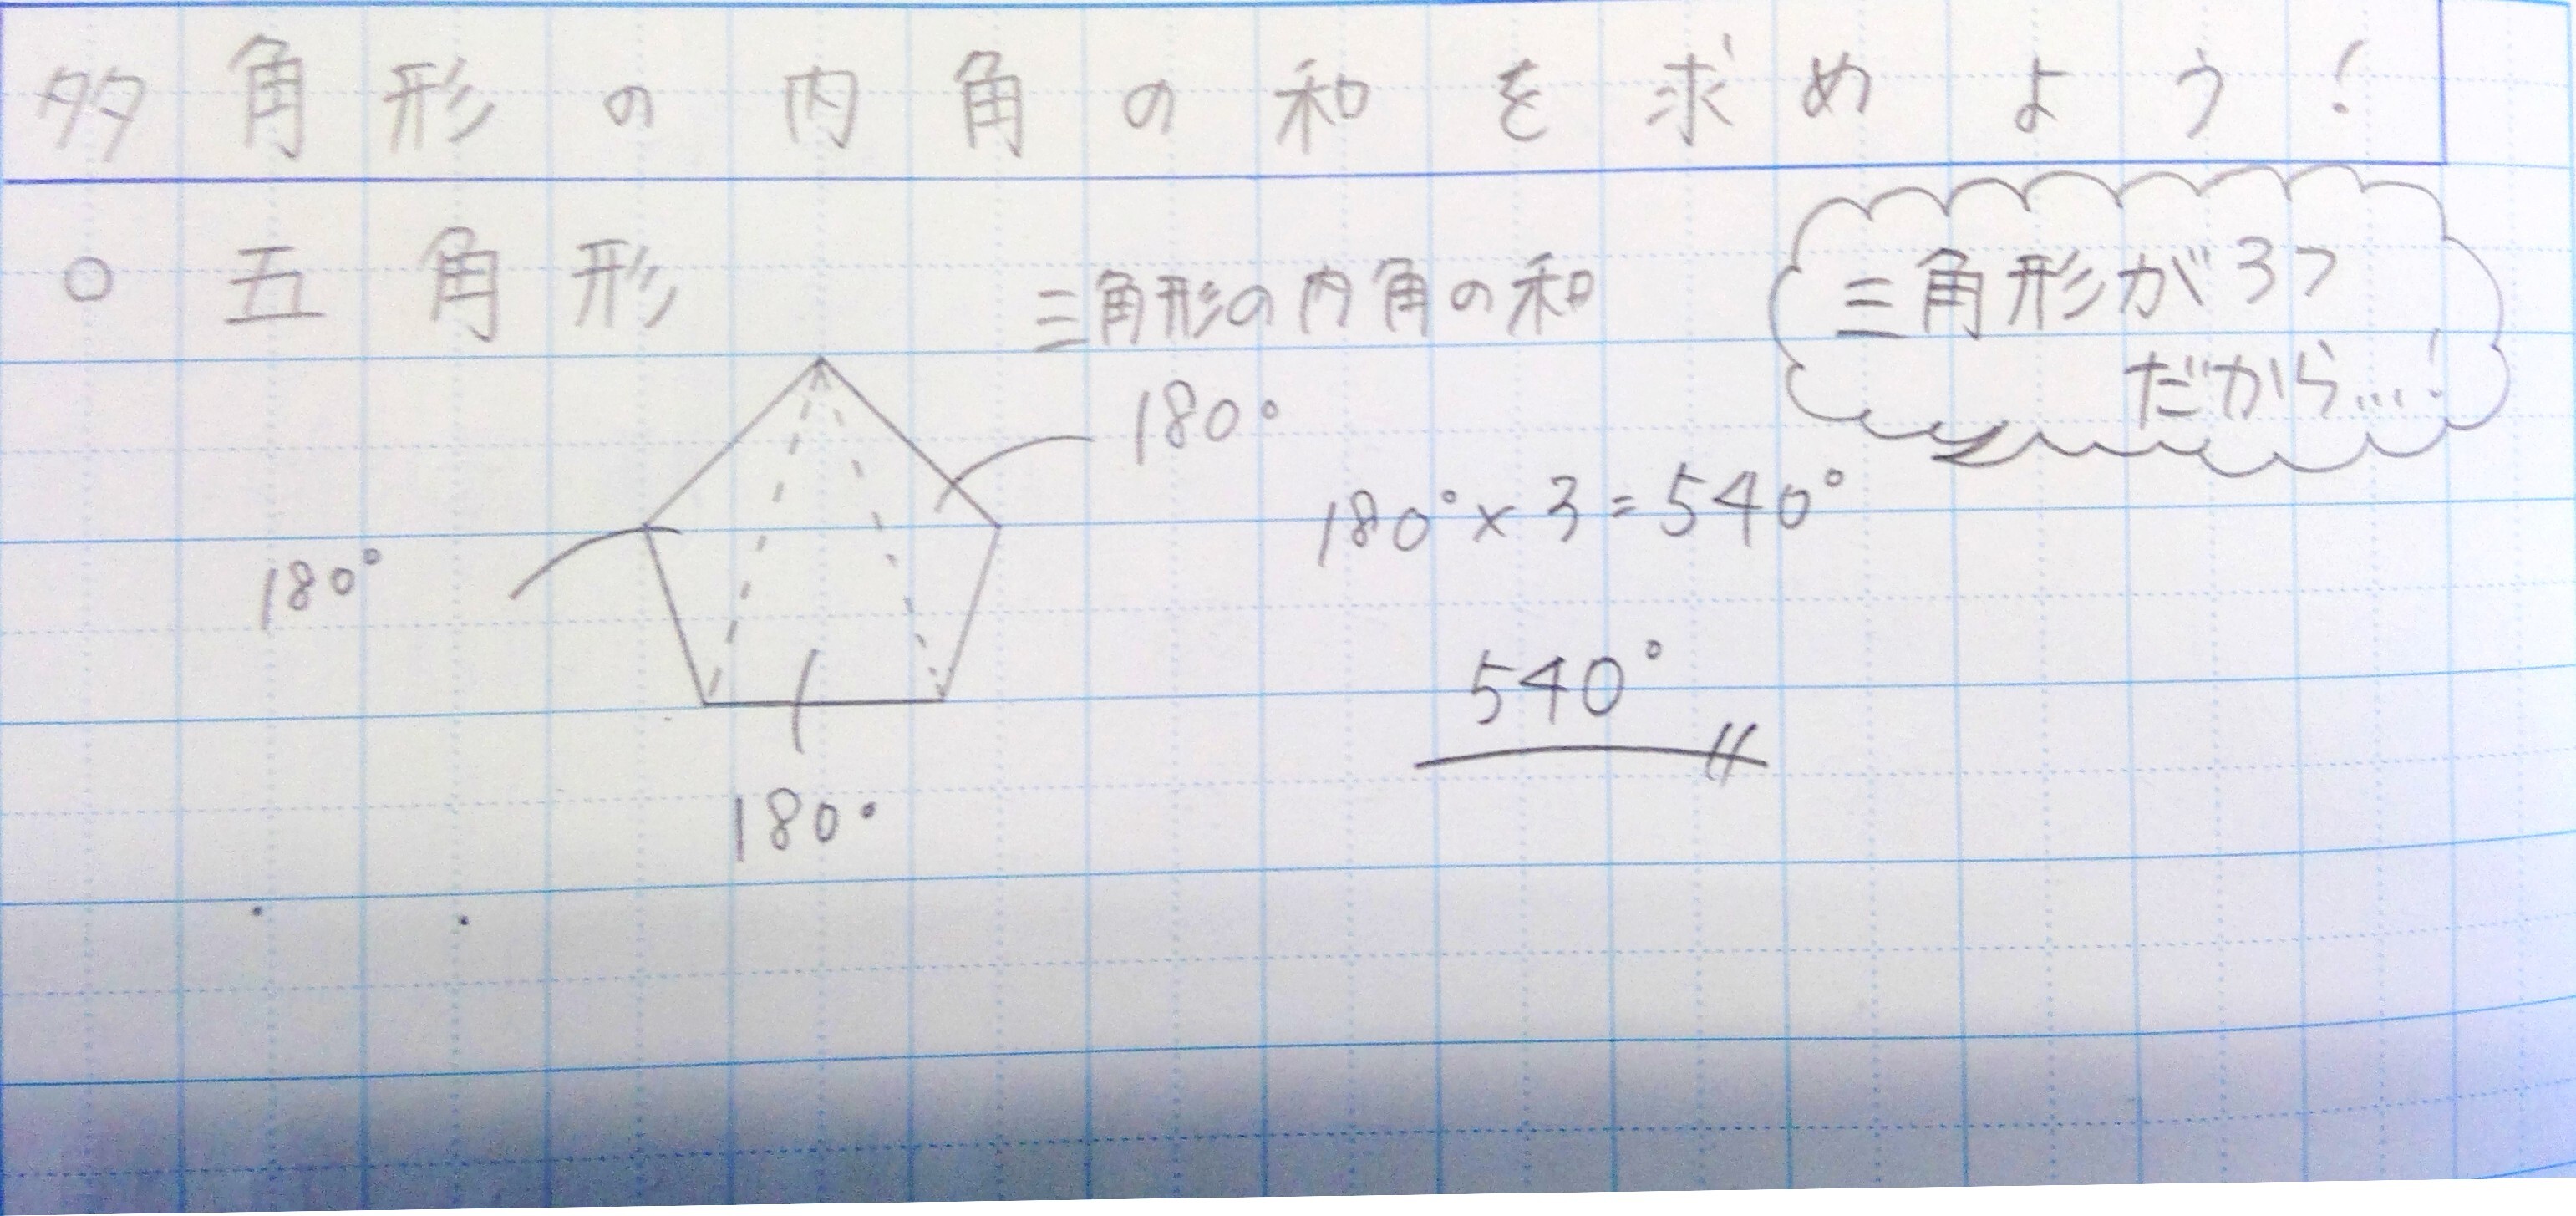 多角形の内角の和を求めよう!
○ 五角形
三角形の内角の和
180°
三角形が3つ
だから...!
180°×3=540°
180°
540°
180°